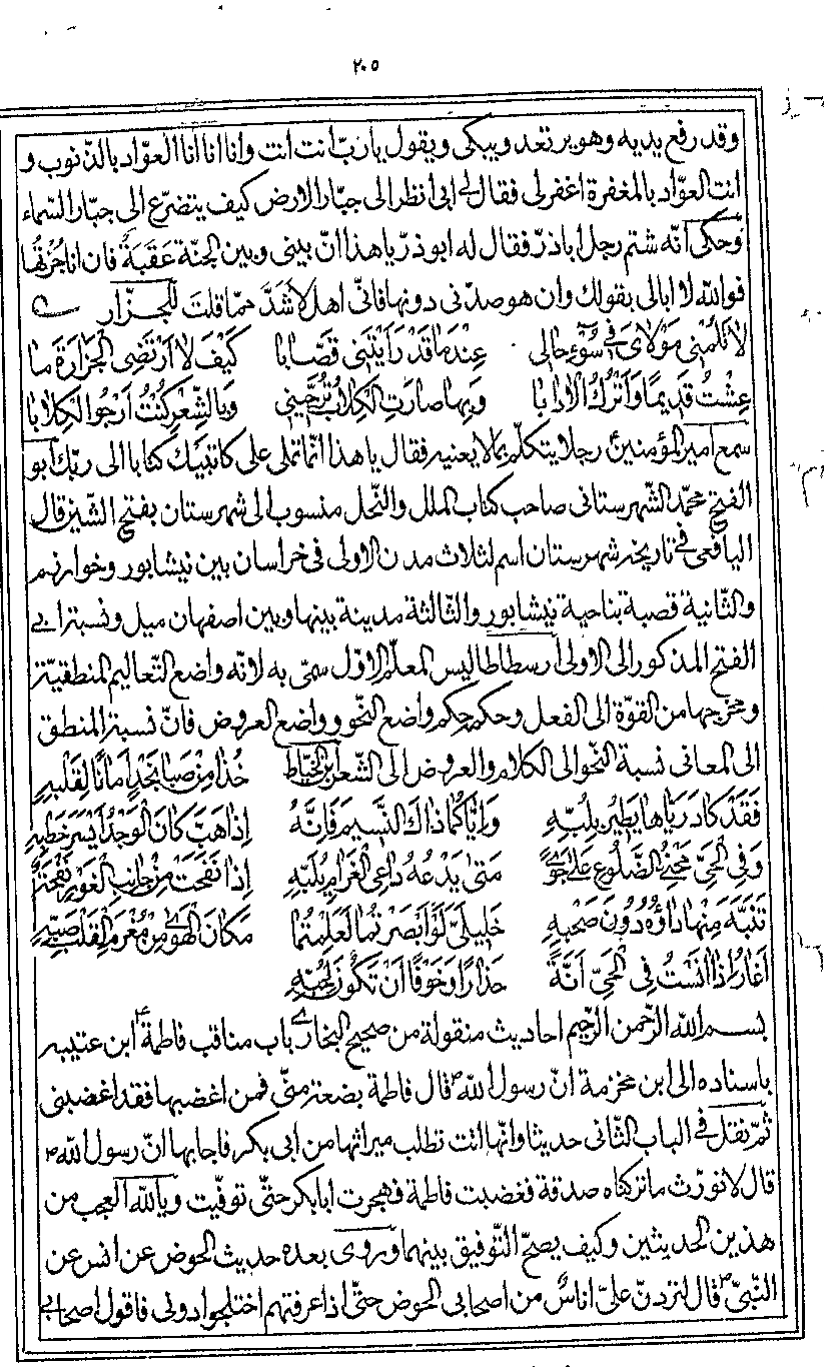 ٢٠٥
وقد رفع يديه وهو يرتعد ويبكى ويقول يا رب انت انت وانا انا انا العوّاد بالذنوب و
انت العوّاد بالمغفرة اغفر لى فقال لى ابى انظر الى جبّار الارض كيف يتضرّع الى جبّار السّماء
وحكى انّه شتم رجل اباذرّ فقال له ابوذرّ يا هذا انّ بينى وبين الجنّة عَقَبَةٌ فان انا جُزْتُها
فوالله لا ابالى بقولك وان هو صدّنى دونها فانّى اهل لاَشَدّ ممّا قلتَ للجزّار
لا تَلُمْنى مَوْلاىَ فى سُوءِ حالى عِنْدَما قَدْ رَأَيْتَنى قَصّابا كَيْفَ لا اَرْتَضى الجَزارَةَ ما
عِشْتُ قَديمًا وَاَتْرُكُ الاٰدابا وَبِها صارَتِ الكِلابُ تُرَجّينى وَبِالشِّعْرِ كُنْتُ اَرْجُو الكِلابا
سمع امير المؤمنين رجلا يتكلّم بما لا يعنيه فقال يا هذا انّما تملى على كاتبيك كتابا الى ربّك ابو
الفتح محمّد الشّهرستانى صاحب كتاب الملل والنّحل منسوب الى شهرستان بفتح الشّين قال
اليافعى فى تاريخه شهرستان اسم لثلاث مدن الاولى فى خراسان بين نيشابور وخوارزم
والثّانية قصبة بناحية نيشابور والثّالثة مدينة بينها وبين اصفهان ميل ونسبة ابى
الفتح المذكور الى الاولى ارسطاطاليس المعلّم الاوّل سمّى به لانّه واضع التّعاليم المنطقيّة
ومخرجها من القوّة الى الفعل وحكمه حكم واضع النّحو وواضع العروض فانّ نسبة المنطق
الى المعانى نسبة النّحو الى الكلام والعروض الى الشّعر ابن الخيّاط خُذا مِنْ صَبا نَجْدٍ اَمانًا لِقَلْبِهِ
فَقَدْ كادَ رَيّاها يَطيرُ بِلُبّهِ وَاِيّاكُما ذاكَ النَّسيمَ فَاِنَّهُ اِذا هَبَّ كانَ الوَجْدُ اَيْسَرَ خَطْبِهِ
وَفِى الحَىِّ مَحْنِىُّ الضُّلُوعِ عَلى جَوىً مَتى يَدْعُهُ داعِى الغَرامِ يُلَبِّهِ اِذا نَفَحَتْ مِنْ جانِبِ الغَوْرِ نَفْحَةٌ
تَنَبَّهَ مِنْها داؤُهُ دُونَ صَحْبِهِ خَليلَىَّ لَوْ اَبْصَرْتُما لَعَلِمْتُما مَكانَ الهَوى مِنْ مُغْرَمِ القَلْبِ صَبِّهِ
اَغارُ اِذا اٰنَسْتُ فِى الحَىِّ اَنَّةً حَذارًا وَخَوْفًا اَنْ تَكُونَ لِحُبِّهِ
بسم الله الرّحمن الرّحيم احاديث منقولة من صحيح البخارى باب مناقب فاطمة ع ابن عتيبه
باسناده الى ابن مخرمة انّ رسول الله ص قال فاطمة بضعة منّى فمن اغضبها فقد اغضبنى
ثمّ نقل فى الباب الثّانى حديثا وانّها اتت تطلب ميراثها من ابى بكر فاجابها انّ رسول الله ص
قال لا نورّث ما تركناه صدقة فغضبت فاطمة فهجرت ابابكر حتّى توفّيت ويا لله العجب من
هذين الحديثين وكيف يصحّ التّوفيق بينهما وروى بعده حديث الحوض عن انس عن
النّبىّ ص قال لتردنّ علىّ اناسٌ من اصحابى الحوض حتّى اذا عرفتهم اختلجوا دونى فاقول اصحابى